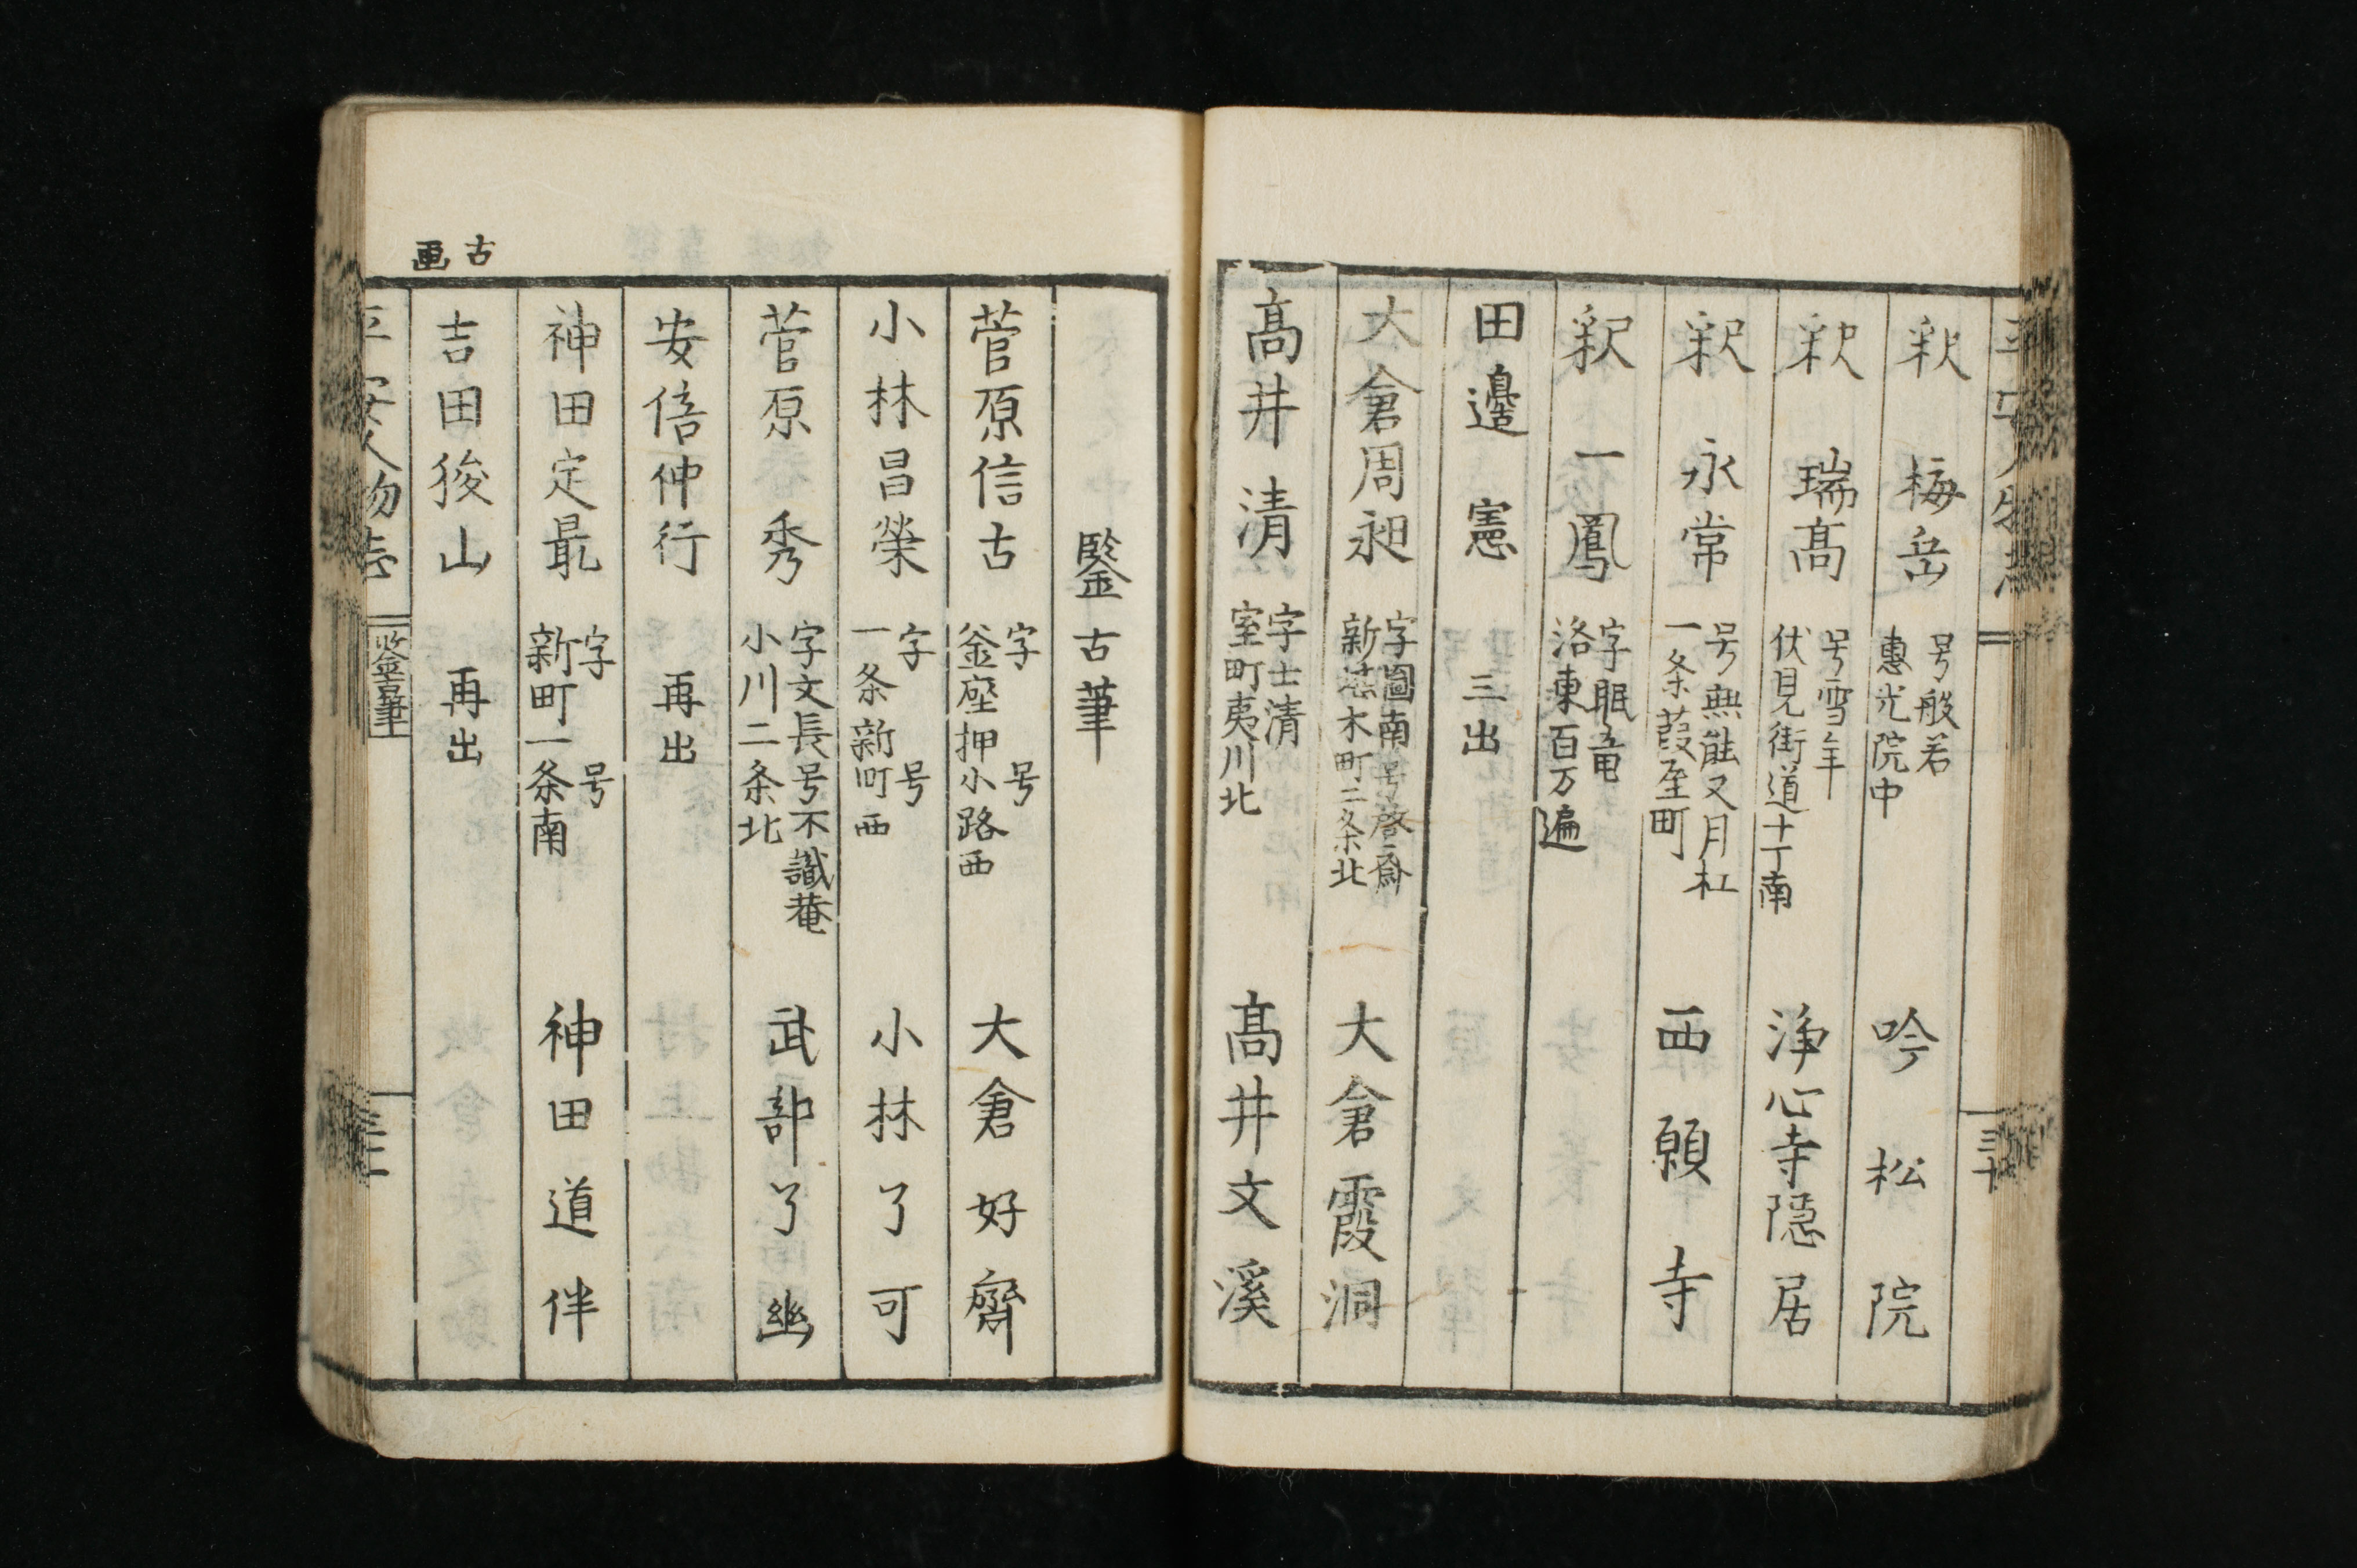 釈 梅岳 号般若 惠光院中 吟松院
釈 瑞高 号雪年 伏見街道十丁南 浄心寺隠居
釈 永常 号無能又月杠 一条葭屋町 西願寺
釈 一鳳 字眠竜 洛東百万遍
田邉 憲 三出
大倉周昶 字圖南 号啓斎 新椹木町二条北 大倉霞洞
髙井 清 字士清 室町夷川北 髙井文溪
鑒古筆
菅原信古 字 号 釜座押小路西 大倉好齋
小林昌榮 字 号 一条新町西 小林了可
菅原 秀 字文長号不識菴 小川二条北 武部了幽
安倍仲行 再出
神田定最 字 号 新町一条南 神田道伴
古画
吉田狻山 再出
平安人物志 鑒古筆